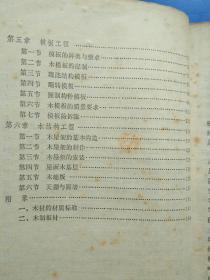 第五章 模板工程
第一节 模板的种类与要求
第二节 木模板的结构
第三节 现浇结构模板
第四节 翻转模板
第五节 预制构件模板
第六节 木模板的质量要求
第七节 模板的拆除
第六章 木结构工程
第一节 木屋架的基本构造
第二节 木屋架的制作
第三节 木屋架的安装
第四节 屋面木基层
第五节 木地板
第六节 天棚与隔墙
附录
一、木材的材质标准
二、木制板材